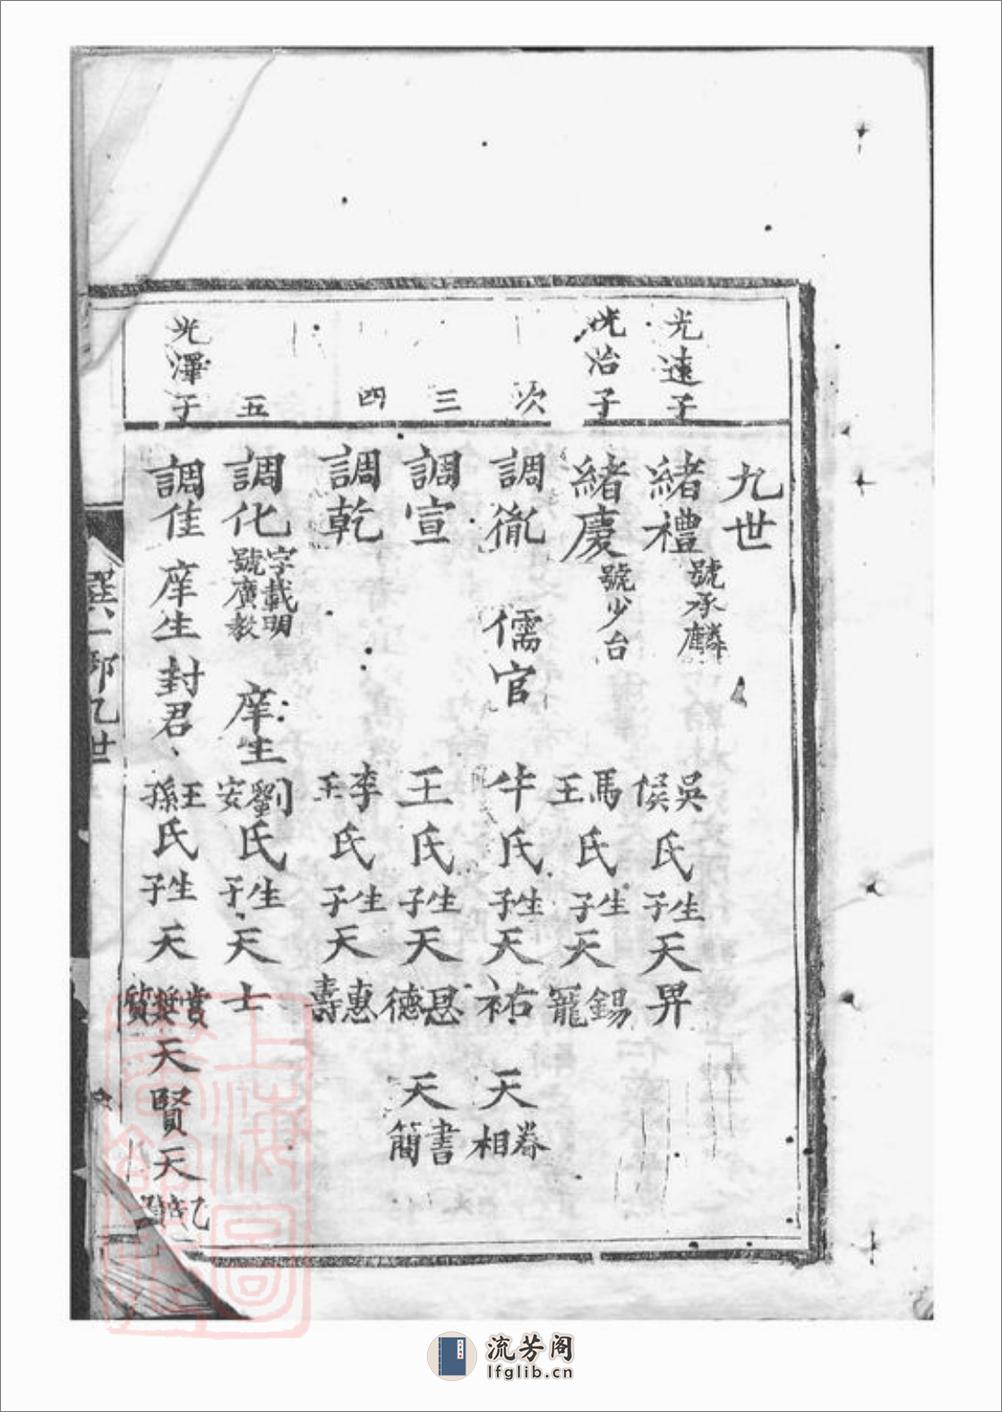 九世
光遠子 緒禮 號承麟 吳侯氏生子天昇
光治子 緒慶 號少台 馬王氏生子天錫寵
次 調胤 儒官 牛氏生子天祐 天眷相
三 調宣 王氏生子天恩德 天書簡
四 調乾 李王氏生子天惠壽
五 調化 字載明號廣教 庠生 劉安氏生子天士
光澤子 調隹 庠生封君 王孫氏生子天賞奬質天賢天
九世
上海圖書館藏
流芳阁
lfglib.cn